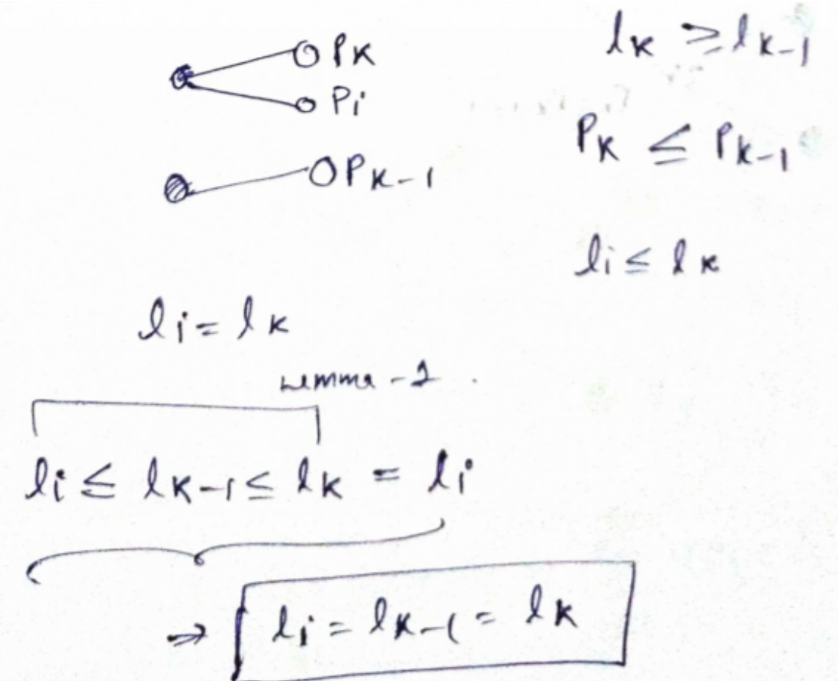 Pk
Pi
Pk-1
lk ≥ lk-1
Pk ≤ Pk-1
li ≤ lk
li = lk
Lemma - 1
li ≤ lk-1 ≤ lk = li
⇒ li = lk-1 = lk